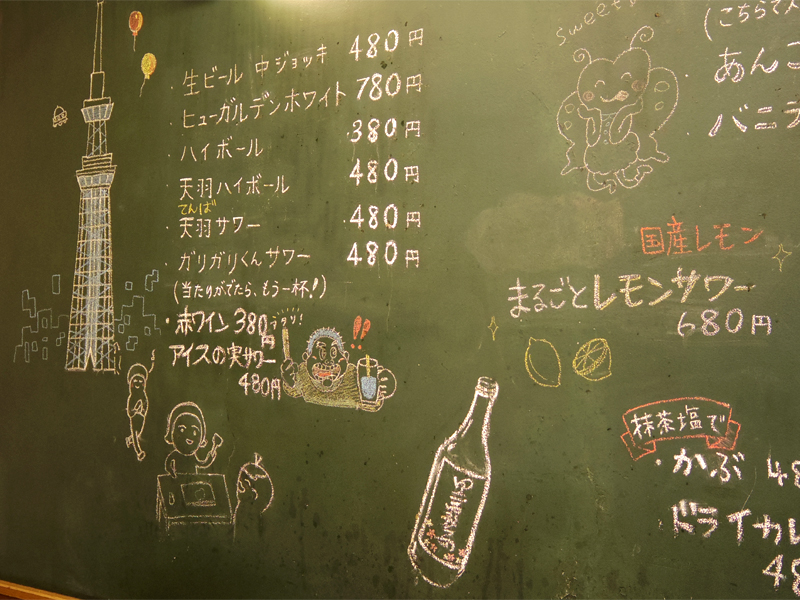 ・生ビール 中ジョッキ 480円
・ヒューガルデンホワイト 780円
・ハイボール 380円
・天羽ハイボール 480円
てんば
・天羽サワー 480円
・ガリガリくんサワー 480円
(当たりがでたら、もう一杯!)
・ホワイン 380円
アイスの実サワー
480円
!!
sweet
(こちらで
・あんこ
・バニラ
国産レモン
まるごとレモンサワー
680円
抹茶塩で
・かぶ 48
・ドライカレ
48